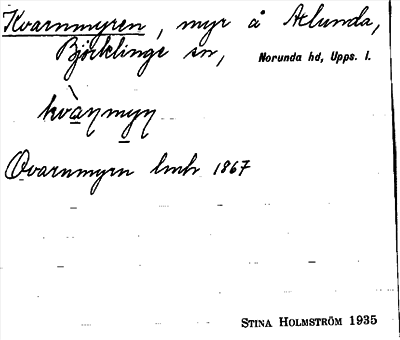 Kvarnmyren, myr å Årlunda,
Björklinge sn, Norunda hd, Upps. l.
kvàηmyη
Qvarnmyrn lmh 1867
STINA HOLMSTRÖM 1935